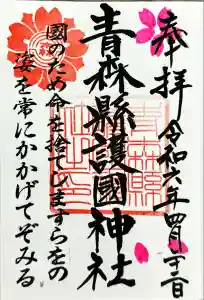 奉拝
令和六年四月廿二日
青森縣護國神社
國のため命を捨てしますらをの
姿を常にかかげてぞみる